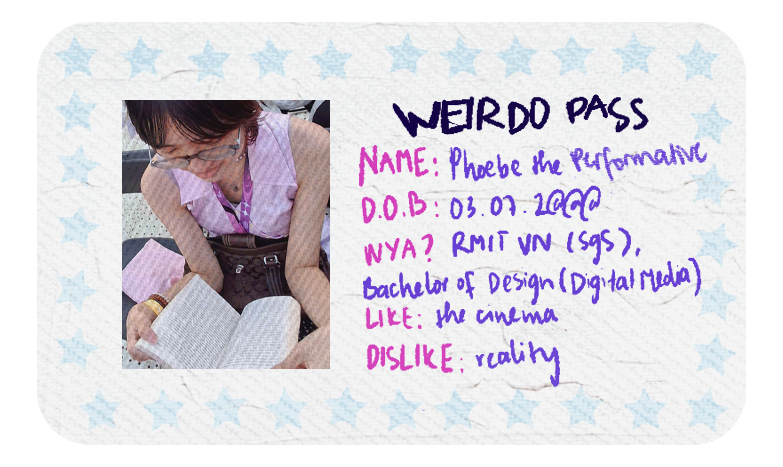 WEIRDO PASS
NAME: Phoebe the Performative
D.O.B: 03.07.2@@@
WYA? RMIT VN (SGS),
Bachelor of Design (Digital Media)
LIKE: the cinema
DISLIKE: reality